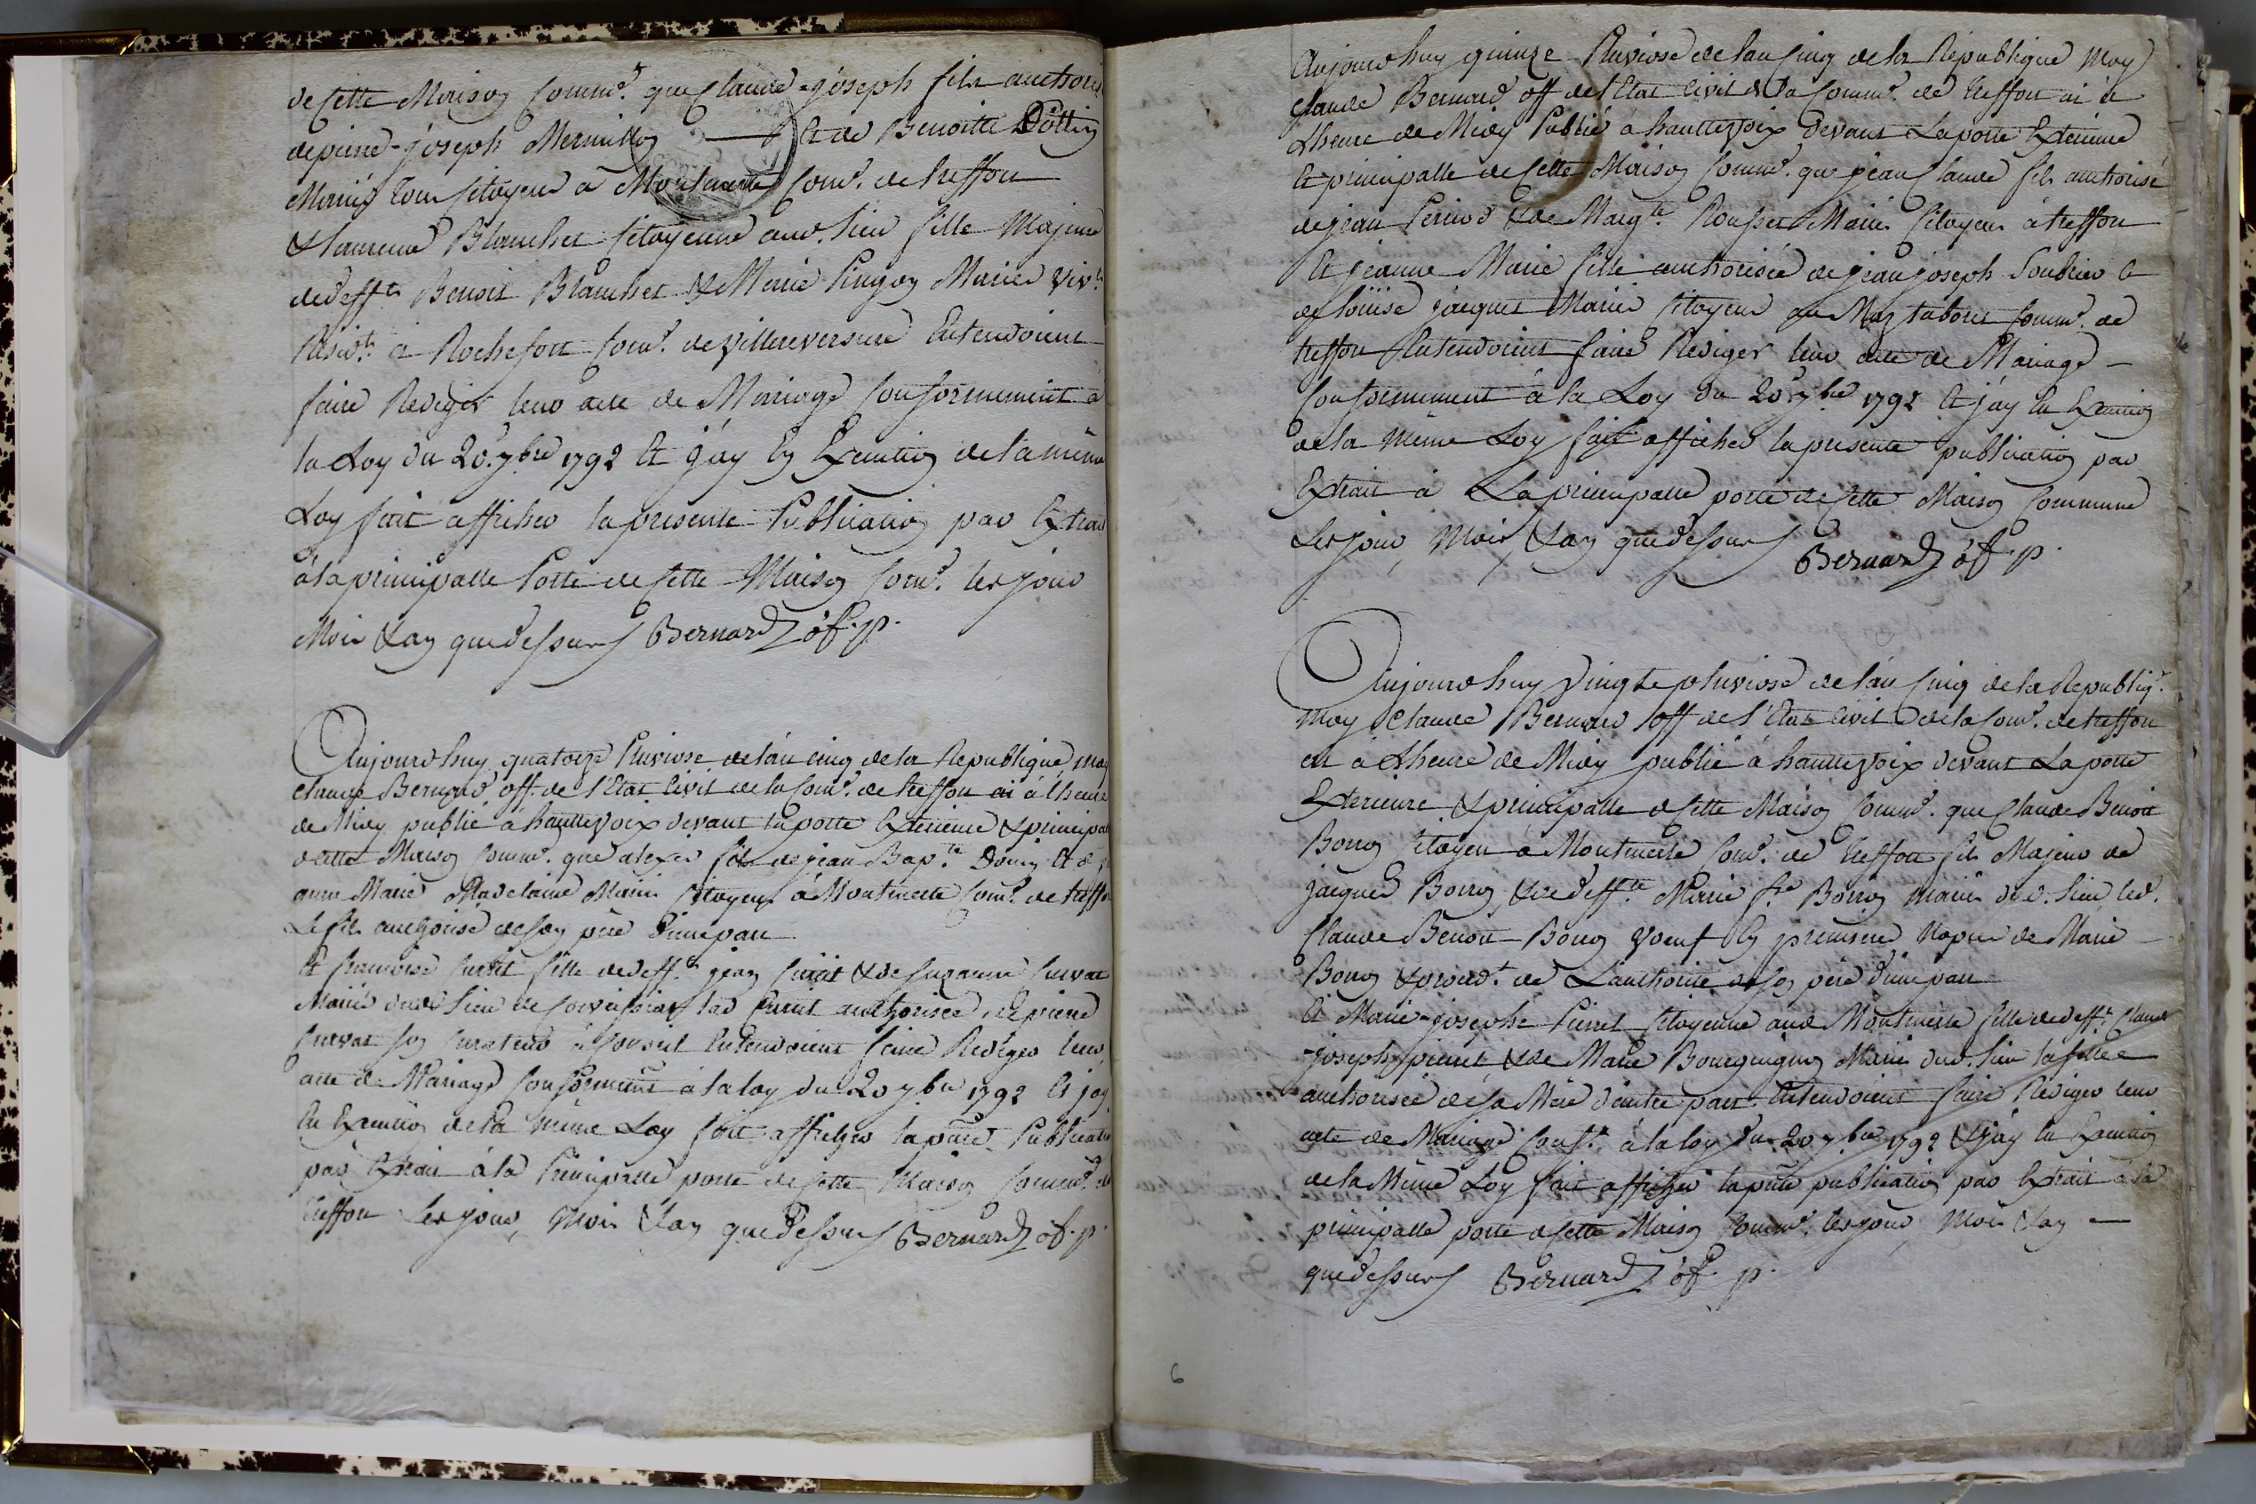 de cette Maison comm.e que Claude-joseph fils authorisé
de pierre-joseph Mermillon et de Benoitte Dottin
Mariés tous citoyens à Montmerle com.e de treffort
& Laurence Blanchet citoyenne aud. lieu fille Majeure
de deff.ts Benoit Blanchet & Marie Pingon Mariés viv.ts
Résid.ts à Rochefort com.e de villereversure Entendoient
faire Rediger leur acte de Mariage conformement à
la Loy du 20. 7bre 1792 Et j'ay En Execution de la même
Loy fait afficher la presente Publication par Extrait
à la principalle Porte de cette Maison com.e les jour
Mois & an que dessus Bernard of. p.
Aujourdhuy quatorze Pluviose de l'an cinq de la Republique moy
Claude Bernard off. de l'Etat Civil de la com.e de treffort ai à l'heure
de Midy publié à hautte voix devant la porte Exterieure & principalle
de cette Maison comm.e que alexis fils de jean Bap.te Douin Et de
Marie Madelaine Mariés Citoyens à Montmerle com.e de treffort
Le fils authorisé de son père d'une part
Et francoise Curset fille de deff.t jean Curset & de Suzanne Curvat
Mariés dud. lieu de lad Curset authorisée de pierre
Curvat son Curateur Entendoient faire Rediger leur
acte de Mariage conformement à la loy du 20 7bre 1792 Et j'ay
En Execution de la même Loy fait afficher la pnte Publication
par Extrait à la Principalle porte de cette Maison comm.e de
treffort Les jour, Mois & an que dessus Bernard of. p.
Aujourdhuy quinze Pluviose de l'an cinq de la Republique Moy
Claude Bernard off de l'Etat Civil de la Comm.e de treffort ai à
Lheure de Midy Publié à hautte voix devant La porte Exterieure
Et principalle de cette Maison comm.e que jean Claude fils authorisé
de jean Perird & de Marg.te Rousset Mariés Citoyens à treffort
Et jeanne Marie fille authorisée de jean joseph Soubrier &
de Loüise jacquet Mariés Citoyens au Maz tabouret comm.e de
treffort Entendoient faire Rediger leur acte de Mariage
Conformement à la Loy du 20 7bre 1792 Et j'ay En Execution
de la Même Loy fait afficher la presente publication par
Extrait à La principalle porte de cette Maison Commune
Les jour, Mois & an que dessus Bernard of. p.
Aujourdhuy vingt pluviose de l'an cinq de la Republiq.
Moy Claude Bernard off de l'Etat Civil de la com.e de treffort
ai à Lheure de Midy publié à hautte voix devant La porte
Exterieure & principalle de cette Maison comm.e que Claude Benoit
Borron Citoyen à Montmerle com.e de treffort fils Majeur de
jacques Borron & de deff.te Marie f.se Borron Mariés dud. lieu led.
Claude Benoit Borron veuf En premiere Nopce de Marie
Borron & de L'authorité de son père d'une part
Et Marie-josephe Pierret Citoyenne aud Montmerle fille de deff.t Claude
joseph pierret & de Marie Bourguignon Mariés dud. lieu la fille
authorisée de sa Mère d'autre part Entendoient faire Rediger leur
acte de Mariage conf.t à la loy du 20 7bre 1792 & j'ay En Execution
de la Même Loy fait afficher la pnte publication par Extrait à la
principalle porte de cette Maison comm.e les jour, Mois & an
que dessus Bernard of. p.
6